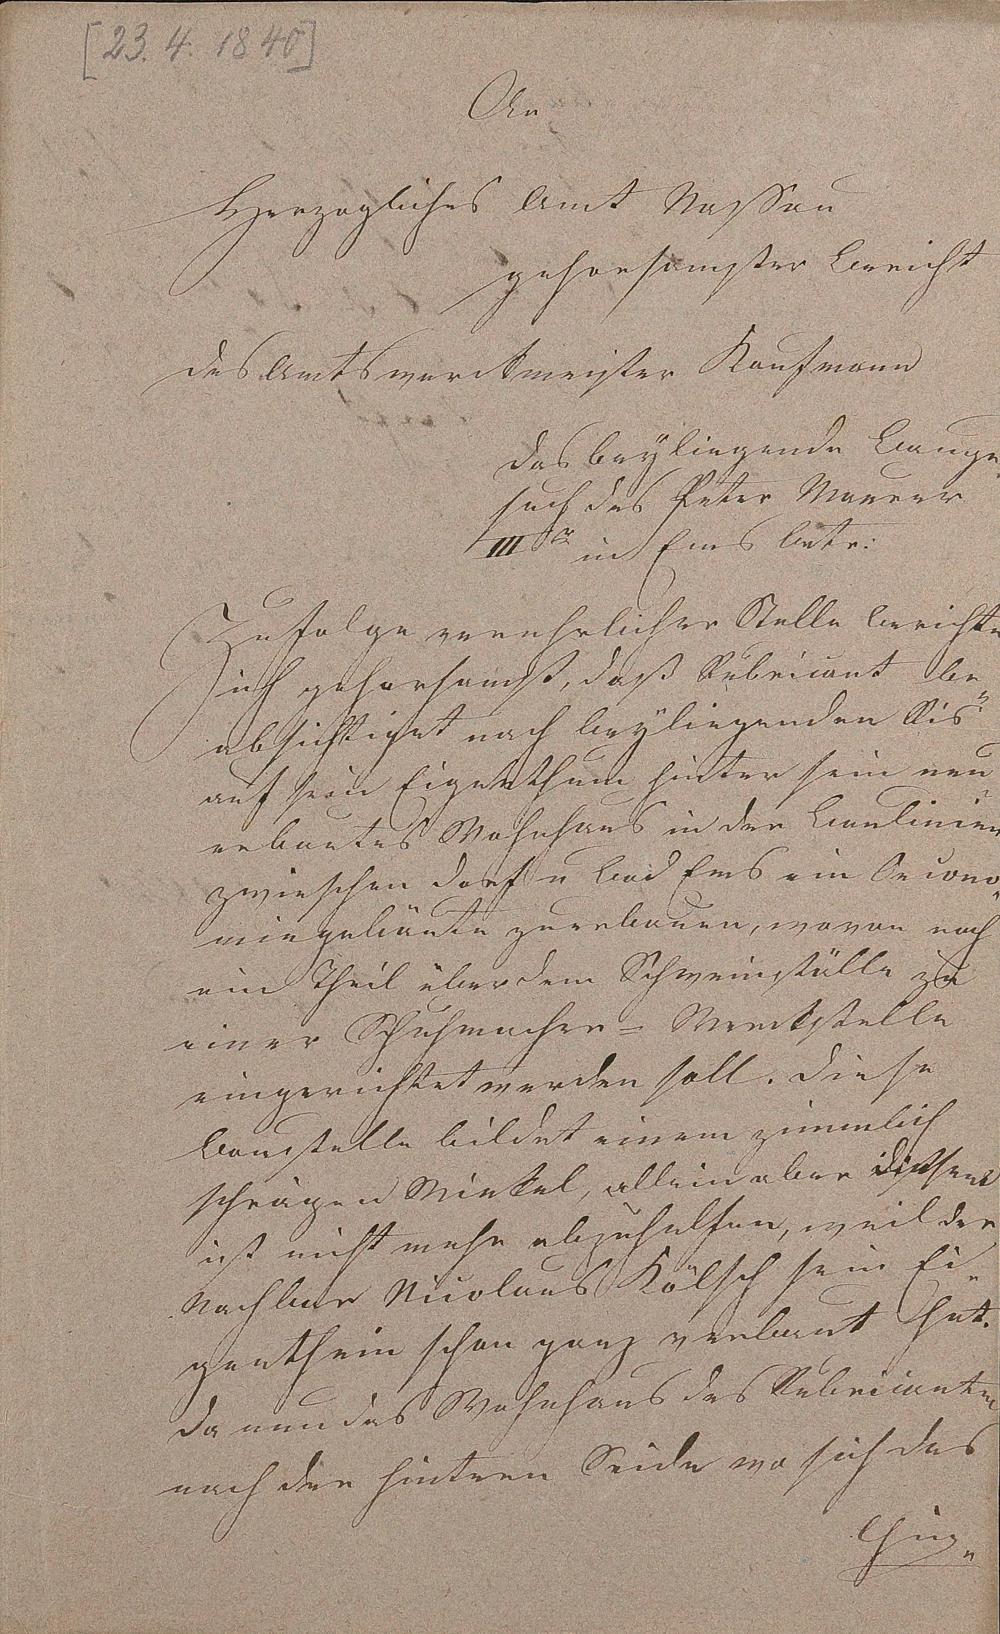 [23. 4. 1840]
An
Herzogliches Amt Nassau
gehorsamster Bericht
des Amtswerckmeister Kaufmann
das beÿliegende Bauge„
such des Peter Maurer
III r in Ems betr:
Zufolge verehrlicher Stelle berichte
ich gehorsamst, daß Rubricant be„
absichtiget nach beÿliegenden Ris
auf sein Eigenthum hinter sein neu
erbautes Wohnhaus in der Baulinien
zwieschen dorf u Bad Ems ein Oecono„
miegebäute zuerbauen, wovon noch
ein Theil über dem Schweinställe zu
einer Schuhmacher= Werckstelle
eingerichtet werden soll. Diese
Baustelle bildet einem zimmlich
schrägen Winkel, allein aber diesem
ist nicht mehr abzuhelfen, weil der
Nachbar Nicolaus Kölsch sein Ei„
genthum schon ganz verbaut hat.
Da nun das Wohnhaus des Rubricanten
nach der hintern Seide wo sich das